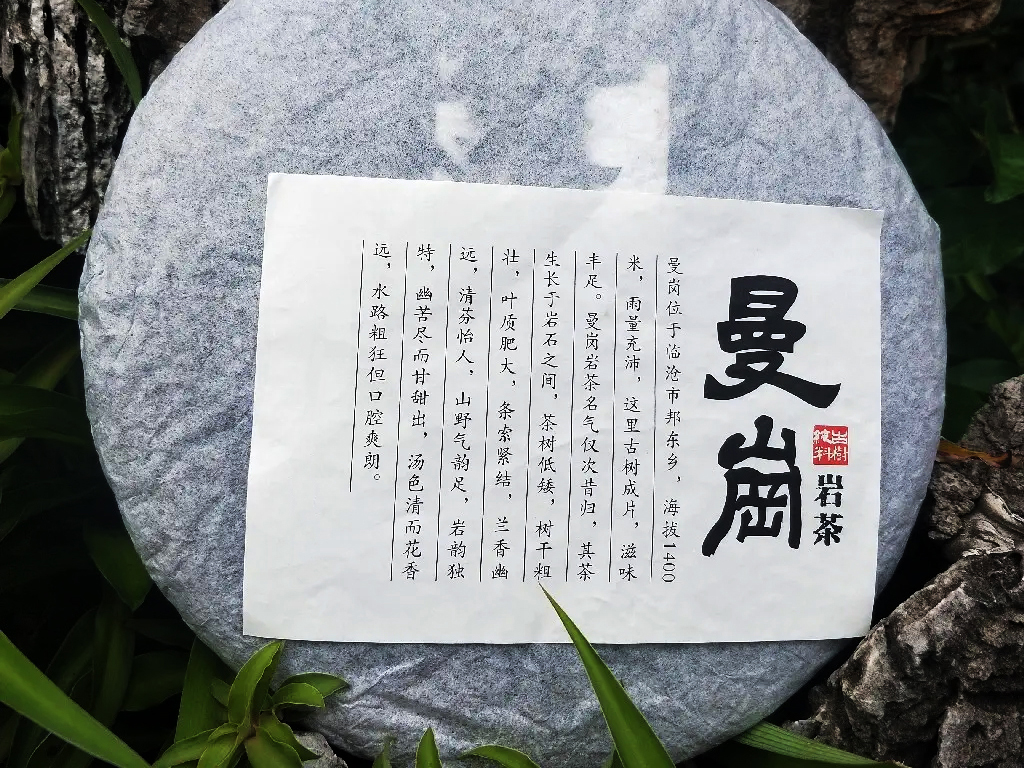 曼崗
古樹
純料
岩茶
曼岗位于临沧市邦东乡，海拔1400
米，雨量充沛，这里古树成片，滋味
丰足。曼岗岩茶名气仅次昔归，其茶
生长于岩石之间，茶树低矮，树干粗
壮，叶质肥大，条索紧结，兰香幽
远，清芬怡人，山野气韵足，岩韵独
特，幽苦尽而甘甜出，汤色清而花香
远，水路粗狂但口腔爽朗。